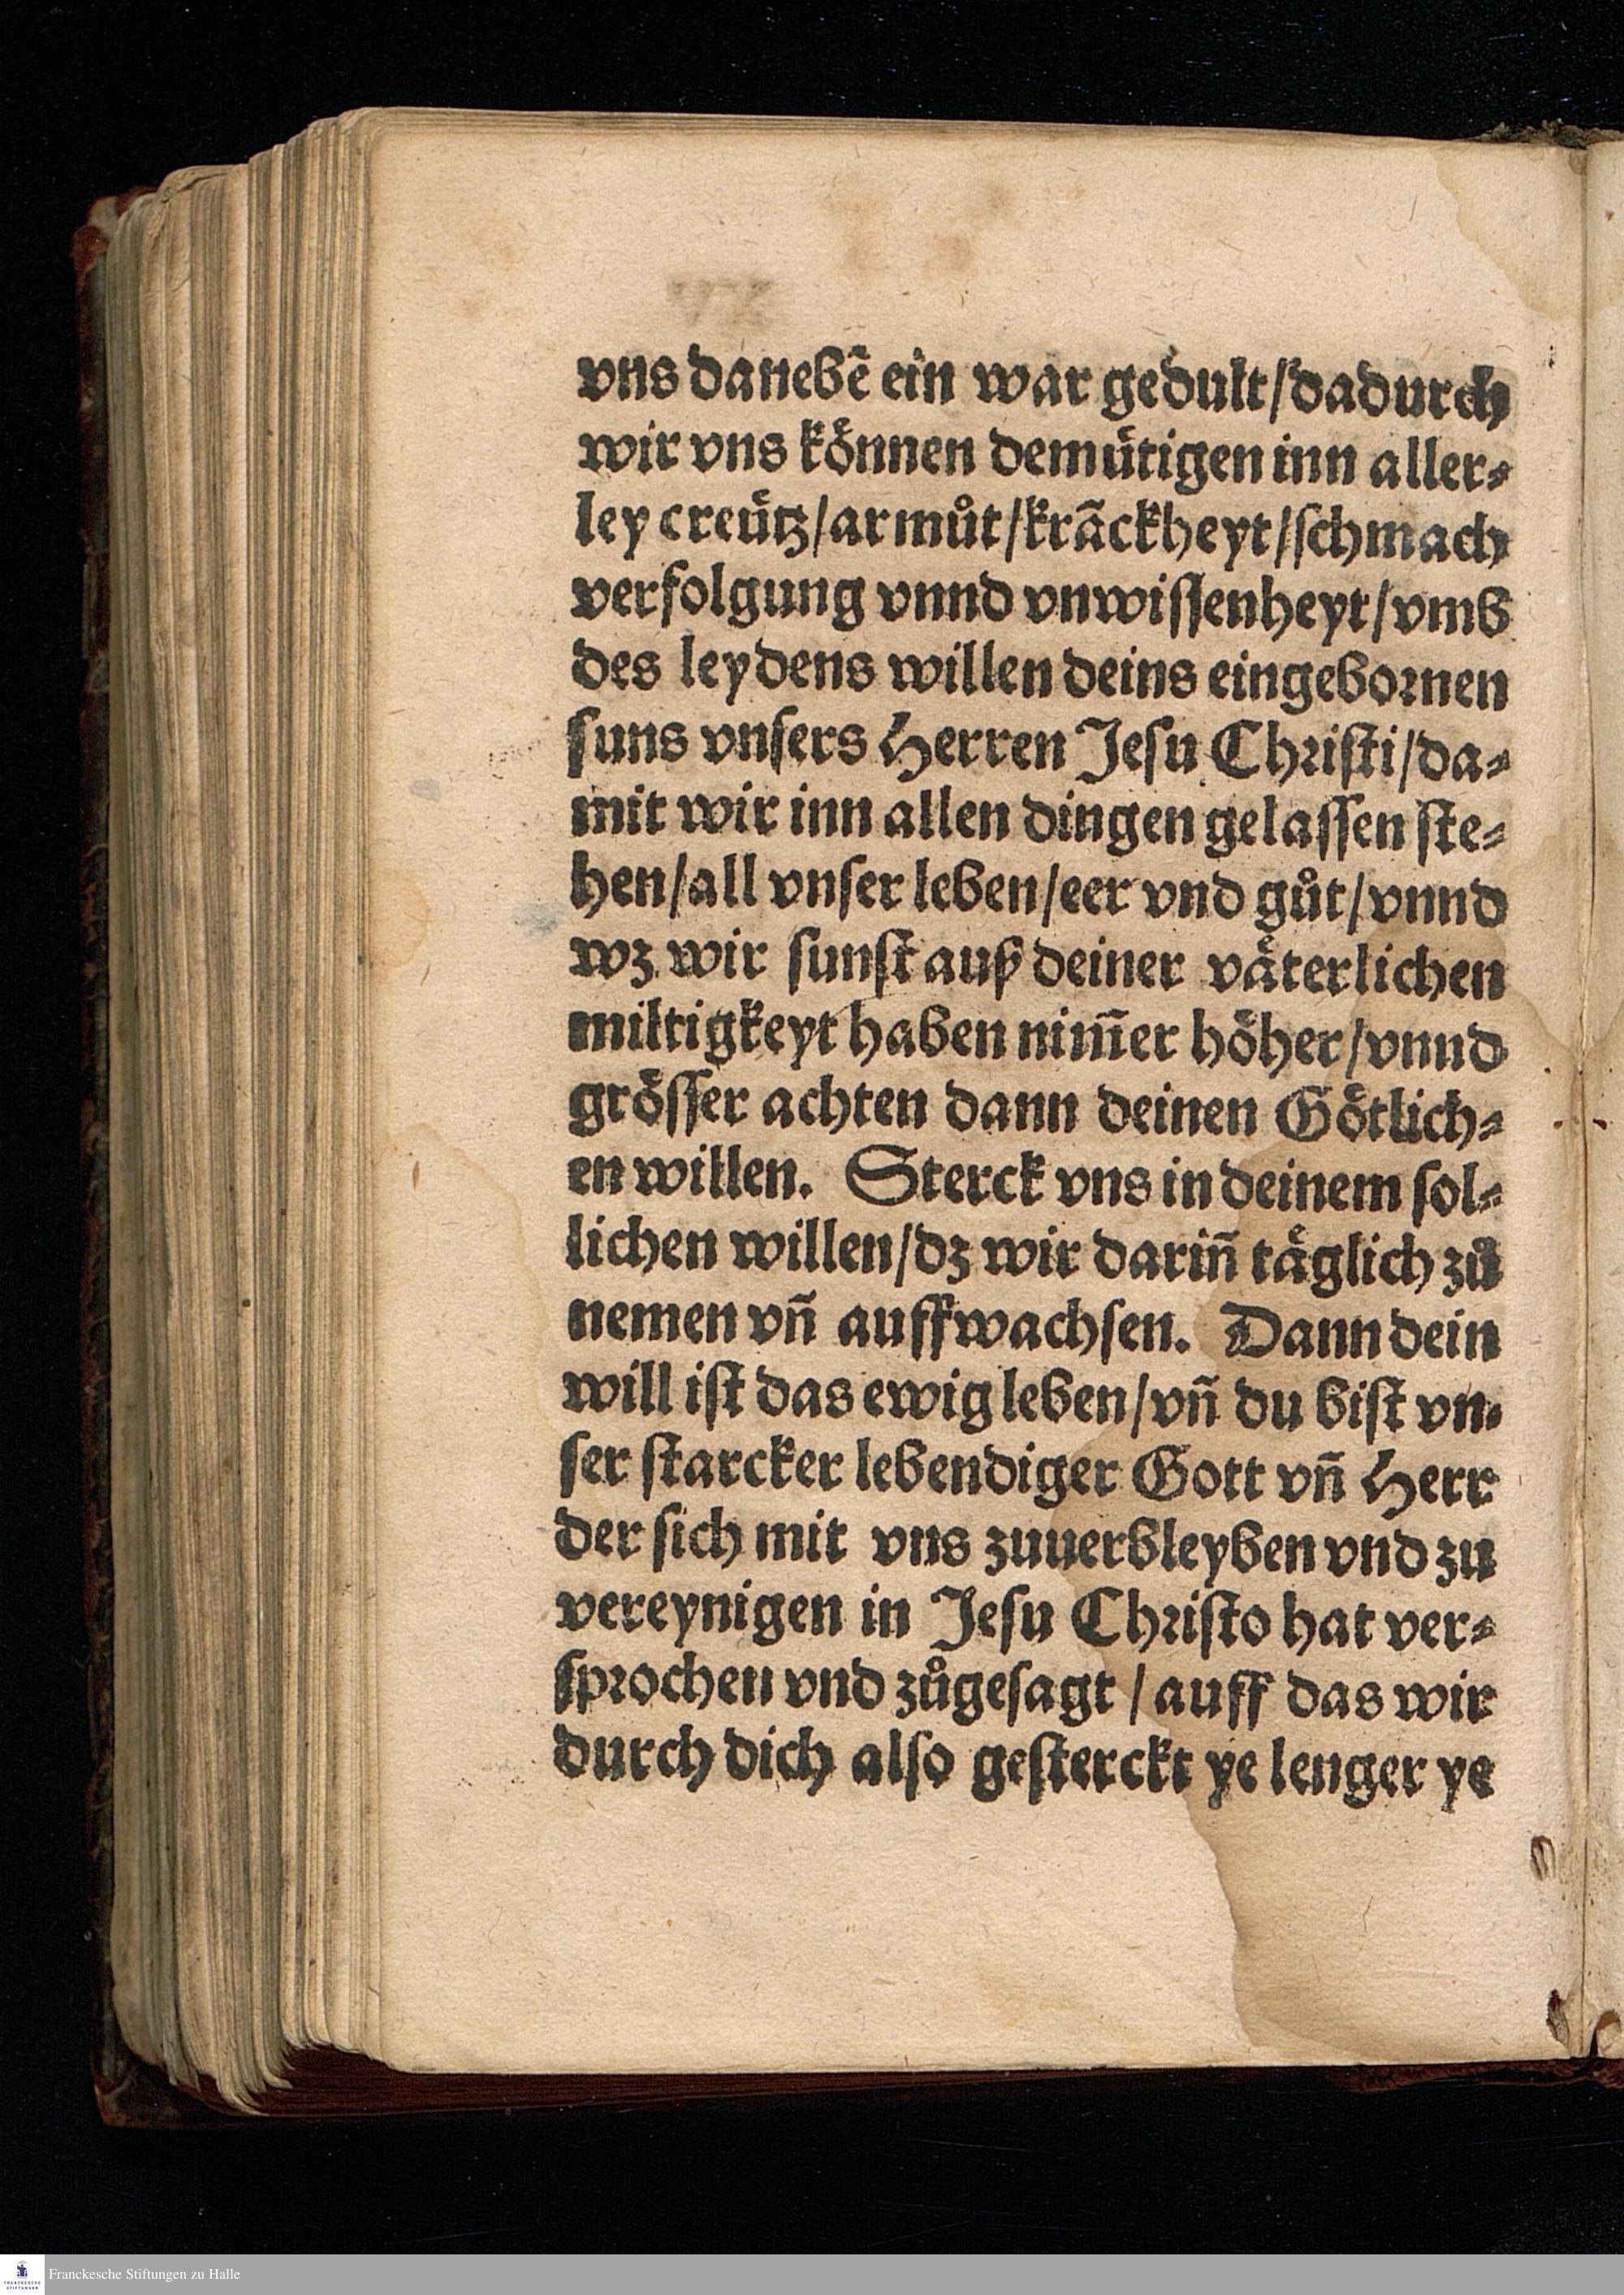 vns danebē ein war gedult/dadurch
wir vns koͤnnen demuͤtigen inn aller⸗
ley creuͤtz/armuͦt/krāckheyt/schmach
verfolgung vnnd vnwissenheyt/vmb
des leydens willen deins eingebornen
suns vnsers Herren Jesu Christi/da⸗
mit wir inn allen dingen gelassen ste⸗
hen/all vnser leben/eer vnd guͦt/vnnd
wz wir sunst auß deiner vaͤterlichen
miltigkeyt haben nim̄er hoͤher/vnnd
groͤsser achten dann deinen Goͤtlich⸗
en willen. Sterck vns in deinem sol⸗
lichen willen/dz wir darin̄ taͤglich zuͦ
nemen vn̄ auffwachsen. Dann dein
will ist das ewig leben/vn̄ du bist vn⸗
ser starcker lebendiger Gott vn̄ Herr
der sich mit vns zuuerbleyben vnd zu
vereynigen in Jesu Christo hat ver⸗
sprochen vnd zuͦgesagt / auff das wir
durch dich also gesterckt ye lenger ye
Franckesche Stiftungen zu Halle